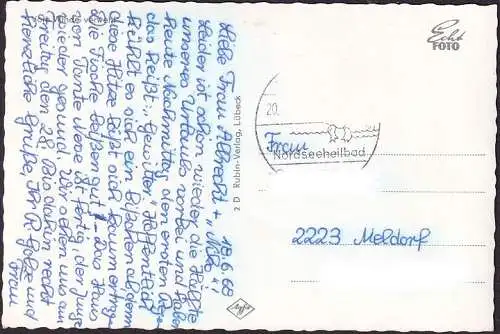 18.6.68
Liebe Frau Albrecht + "Niko"!
Leider ist schon wieder die Hälfte
unseres Urlaubs vorbei und haben
heute Nachmittag den ersten Regen
das heißt: "Gewitter". Hoffentlich
kühlt es sich ein bißchen ab, denn
diese Hitze läßt sich kaum ertragen.
Die Fische beißen gut! - Das Haus
von Tante Nene ist fertig, der Junge
wieder gesund. Wir sehen uns am
Freitag den 28. Bis dahin recht
herzliche Grüße, Ihr R. und
Frau
2 D Rubin-Verlag, Lübeck
Echt
FOTO
20.
Nordseeheilbad
Frau
2223 Meldorf
Agfa